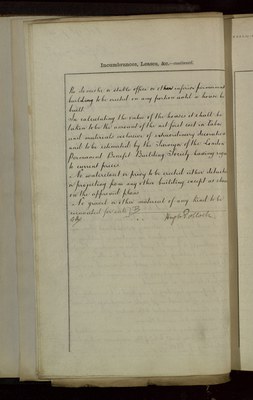 Incumbrances, Leases, &c.—continued.
No stable office or other inferior permanent
building to be erected on any portion until a house be
built
In calculating the value of the houses it shall be
taken to be the amount of the net first cost in labor
and materials exclusive of extraordinary decoration
and to be estimated by the Surveyor of the London
Permanent Benefit Building Society having regard
to current prices
No watercloset or privy to be erected either detached
or projecting from any other building except as shewn
on the approved plans
No gravel or other material of any kind to be
Hugh Pollock